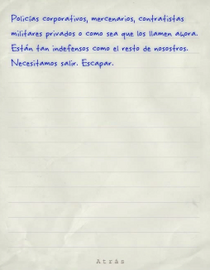 Policías corporativos, mercenarios, contratistas
militares privados o como sea que los llamen ahora.
Están tan indefensos como el resto de nosotros.
Necesitamos salir. Escapar.
Atrás